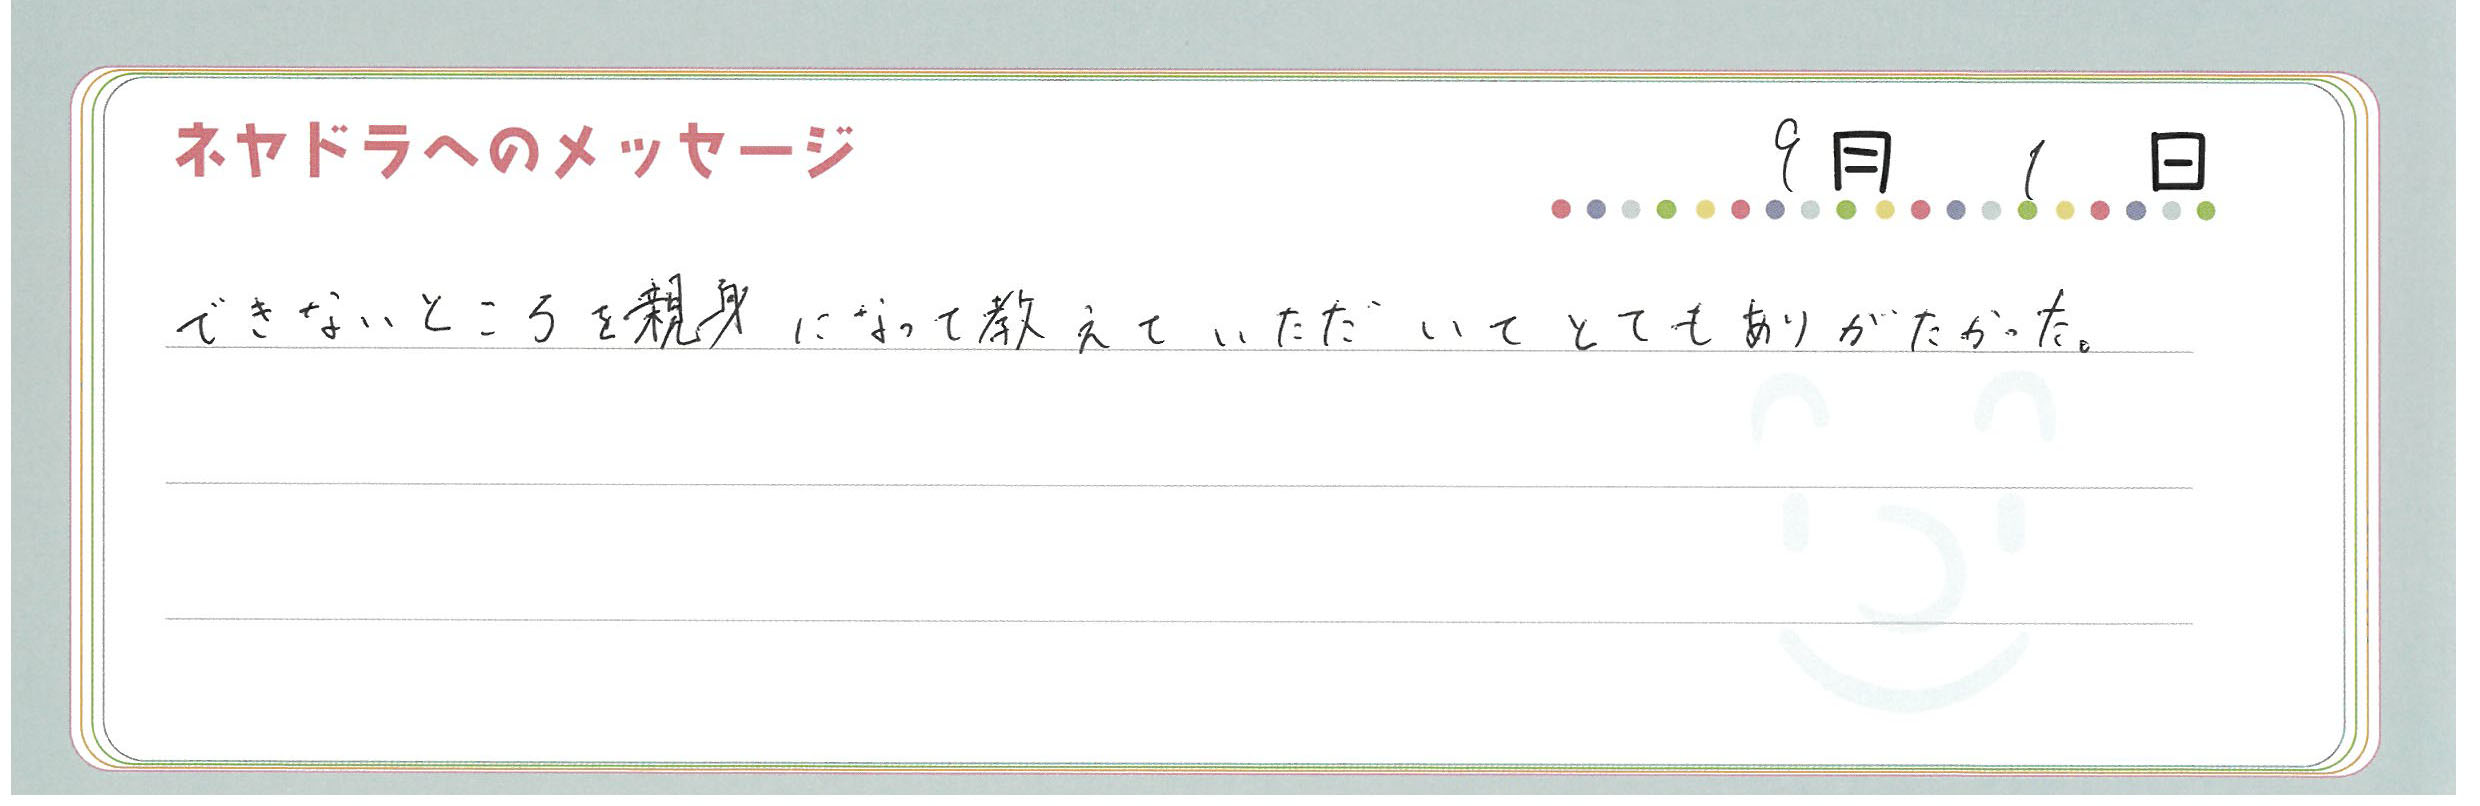 ネヤドラへのメッセージ
9月 1日
できないところを親身になって教えていただいてとてもありがたかった。